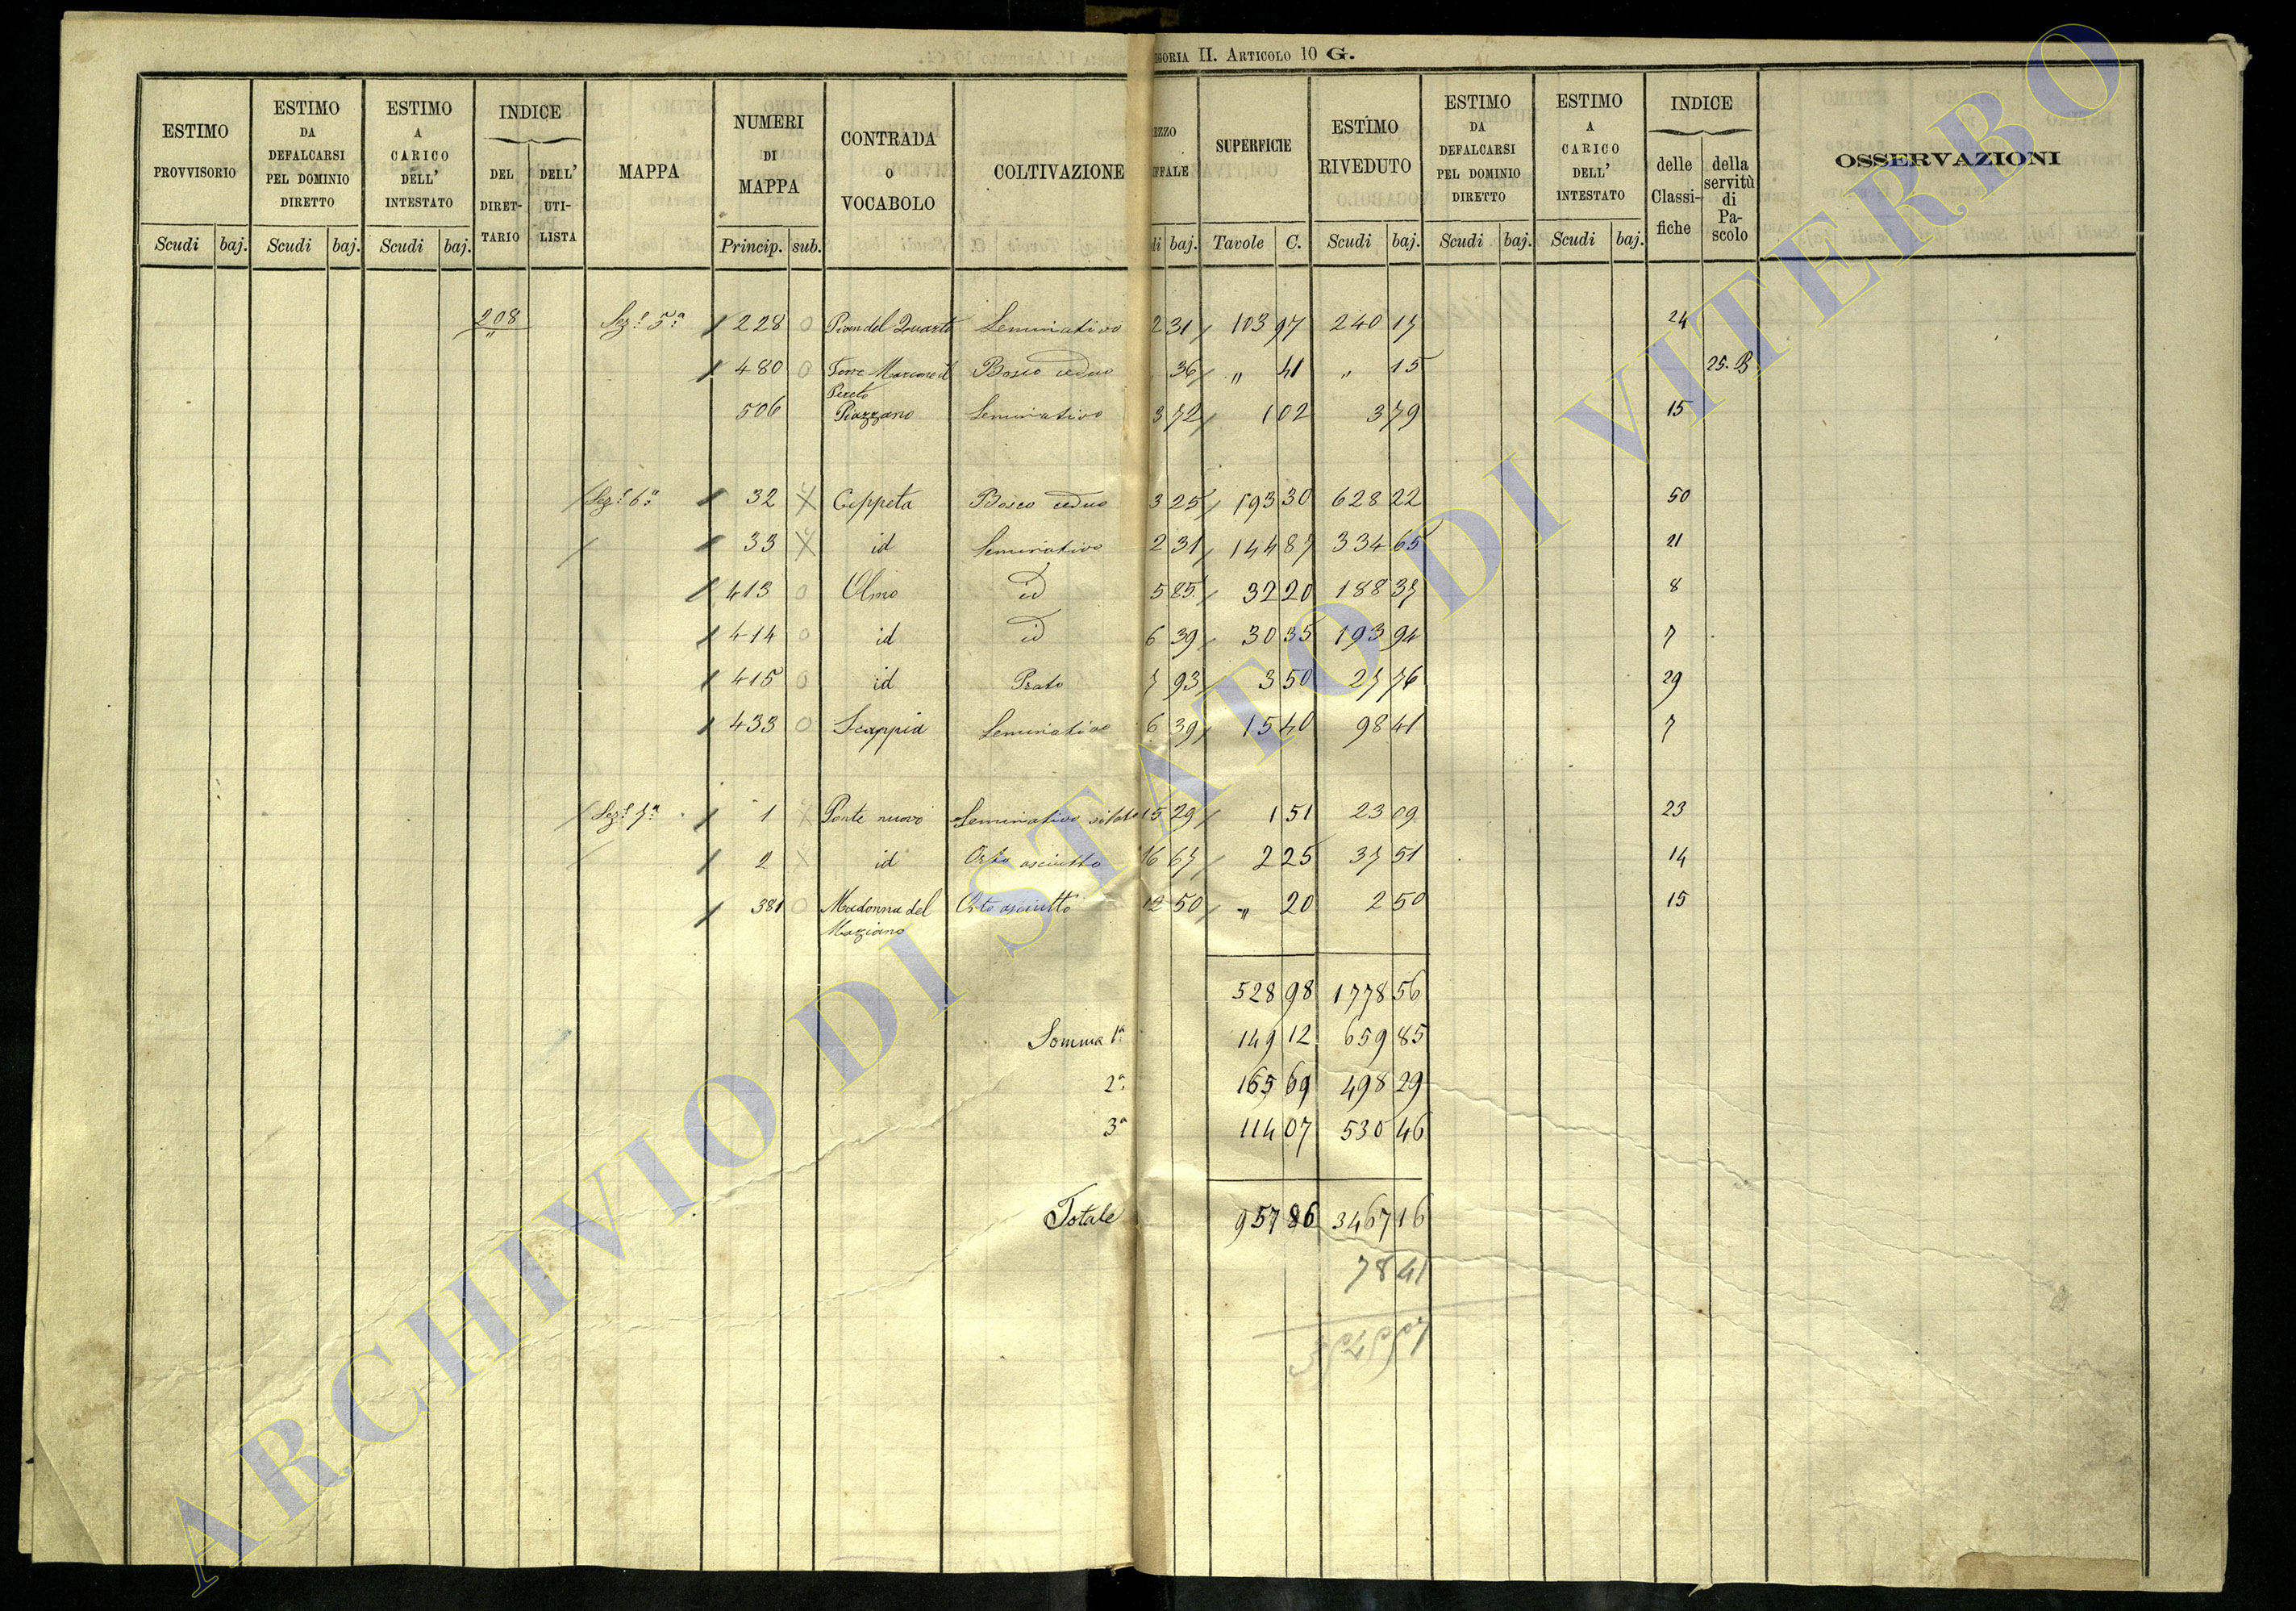 EGORIA II. ARTICOLO 10 G.
ESTIMO PROVVISORIO | ESTIMO DA DEFALCARSI PEL DOMINIO DIRETTO | ESTIMO A CARICO DELL' INTESTATO | INDICE DEL DIRET-TARIO | DELL' UTI-LISTA | MAPPA | NUMERI DI MAPPA | CONTRADA O VOCABOLO | COLTIVAZIONE | EZZO IFFALE | SUPERFICIE | ESTIMO RIVEDUTO | ESTIMO DA DEFALCARSI PEL DOMINIO DIRETTO | ESTIMO A CARICO DELL' INTESTATO | INDICE delle Classi-fiche | della servitù di Pa-scolo | OSSERVAZIONI
Scudi baj. | Scudi baj. | Scudi baj. | Princip. sub. | di baj. | Tavole C. | Scudi baj. | Scudi baj. | Scudi baj.
208 " Sez.e 5.a 228 0 Pian del Quarto Seminativo 2 31 103 97 240 17 24
480 0 Bosco ceduo 36 " 41 " 15 25. B
506 Piazzano Seminativo 3 72 1 02 3 79 15
Sez.e 6.a 32 Ceppeta Bosco ceduo 3 25 193 30 628 22 50
33 id Seminativo 2 31 144 87 334 65 21
413 0 Olmo id 5 85 32 20 188 37 8
414 0 id id 6 39 30 35 193 94 7
415 0 id Prato 7 93 3 50 27 76 29
433 0 Scappia Seminativo 6 39 15 40 98 41 7
Sez.e 7.a 1 Ponte nuovo Seminativo vitato 15 29 1 51 23 09 23
2 id Orto asciutto 16 67 2 25 37 51 14
381 0 Madonna del Orto asciutto 12 50 " 20 2 50 15
Marziano
528 98 1778 56
Somma 1.a 149 12 659 85
2.a 165 69 498 29
3.a 114 07 530 46
Totale 957 86 3467 16
78 41
ARCHIVIO DI STATO DI VITERBO